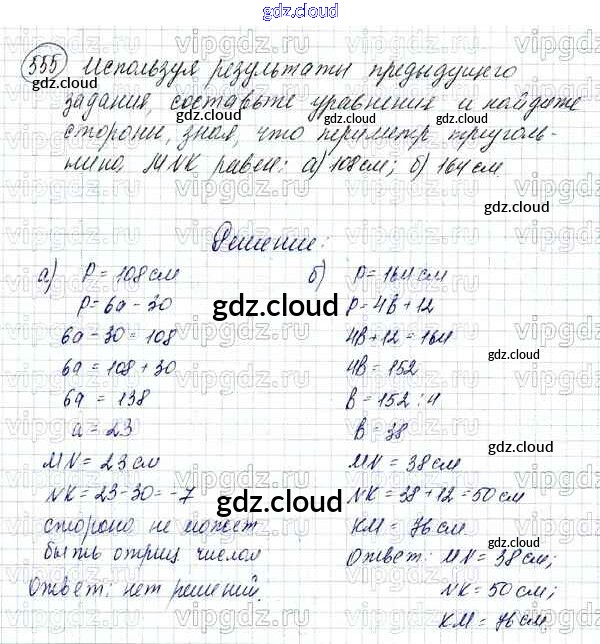 gdz.cloud
555 Используя результаты предыдущего
задания, составьте уравнения и найдите
стороны, зная, что периметр треуголь-
ника MNK равен: а) 108 см; б) 164 см
Решение:
а) P = 108 см
P = 6a - 30
6a - 30 = 108
6a = 108 + 30
6a = 138
a = 23
MN = 23 см
NK = 23 - 30 = -7
сторона не может
быть отриц числом
Ответ: нет решений.
б) P = 164 см
P = 4B + 12
4B + 12 = 164
4B = 152
B = 152 : 4
B = 38
MN = 38 см
NK = 38 + 12 = 50 см
KM = 76 см.
Ответ: MN = 38 см;
NK = 50 см;
KM = 76 см
gdz.cloud
vipgdz.ru